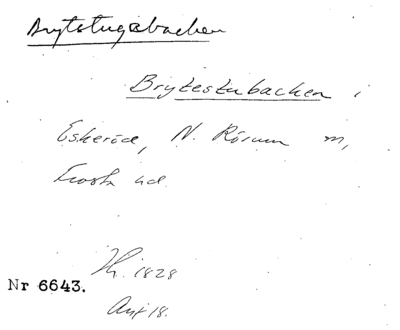 Brytstugebacken
Brytestubacken i
Eskeröd, N. Rörum m,
Frosta hd.
Kr. 1828
Nr 6643.
Avf 18.